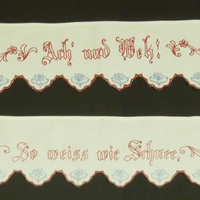 Ach' und Weh!
So weiss wie Schnee,